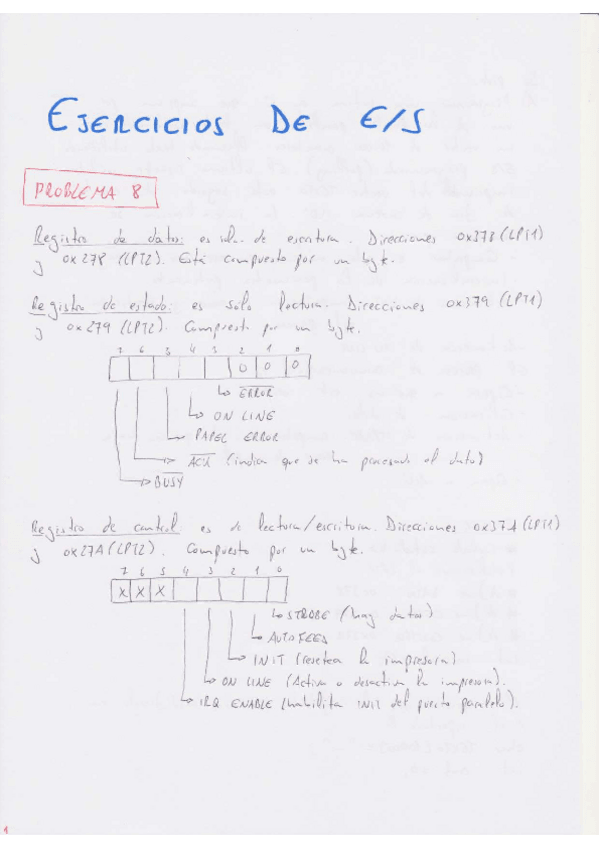 EJERCICIOS DE E/S
PROBLEMA 8
Registro de datos: es sólo de escritura. Direcciones 0x378 (LPT1)
y 0x278 (LPT2). Está compuesto por un byte.
Registro de estado: es sólo lectura. Direcciones 0x379 (LPT1)
y 0x279 (LPT2). Compuesto por un byte.
7 6 5 4 3 2 1 0
0 0 0
ERROR
ON LINE
PAPEL ERROR
ACK (indica que se ha procesado el dato)
BUSY
Registro de control es de lectura/escritura. Direcciones 0x37A (LPT1)
y 0x27A (LPT2). Compuesto por un byte.
7 6 5 4 3 2 1 0
X X X
STROBE (hay datos)
AUTOFEES
INIT (resetea la impresora)
ON LINE (Activa o desactiva la impresora).
IRQ ENABLE (habilita INIT del puerto paralelo).
1